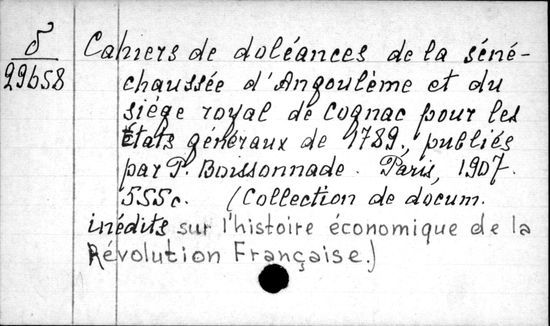 δ
29658
Cahiers de doléances de la séné-
chaussée d'Angoulème et du
siége royal de Cognac pour les
États généraux de 1789., publiés
par P. Boissonnade. Paris, 1907.
555c. (Collection de docum.
inédits sur l'histoire économique de la
Révolution Française.)